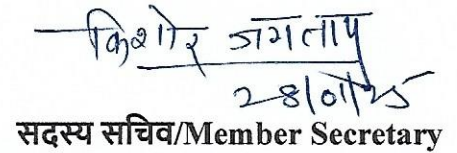 किशोर जगताप
28/01/25
सदस्य सचिव/Member Secretary